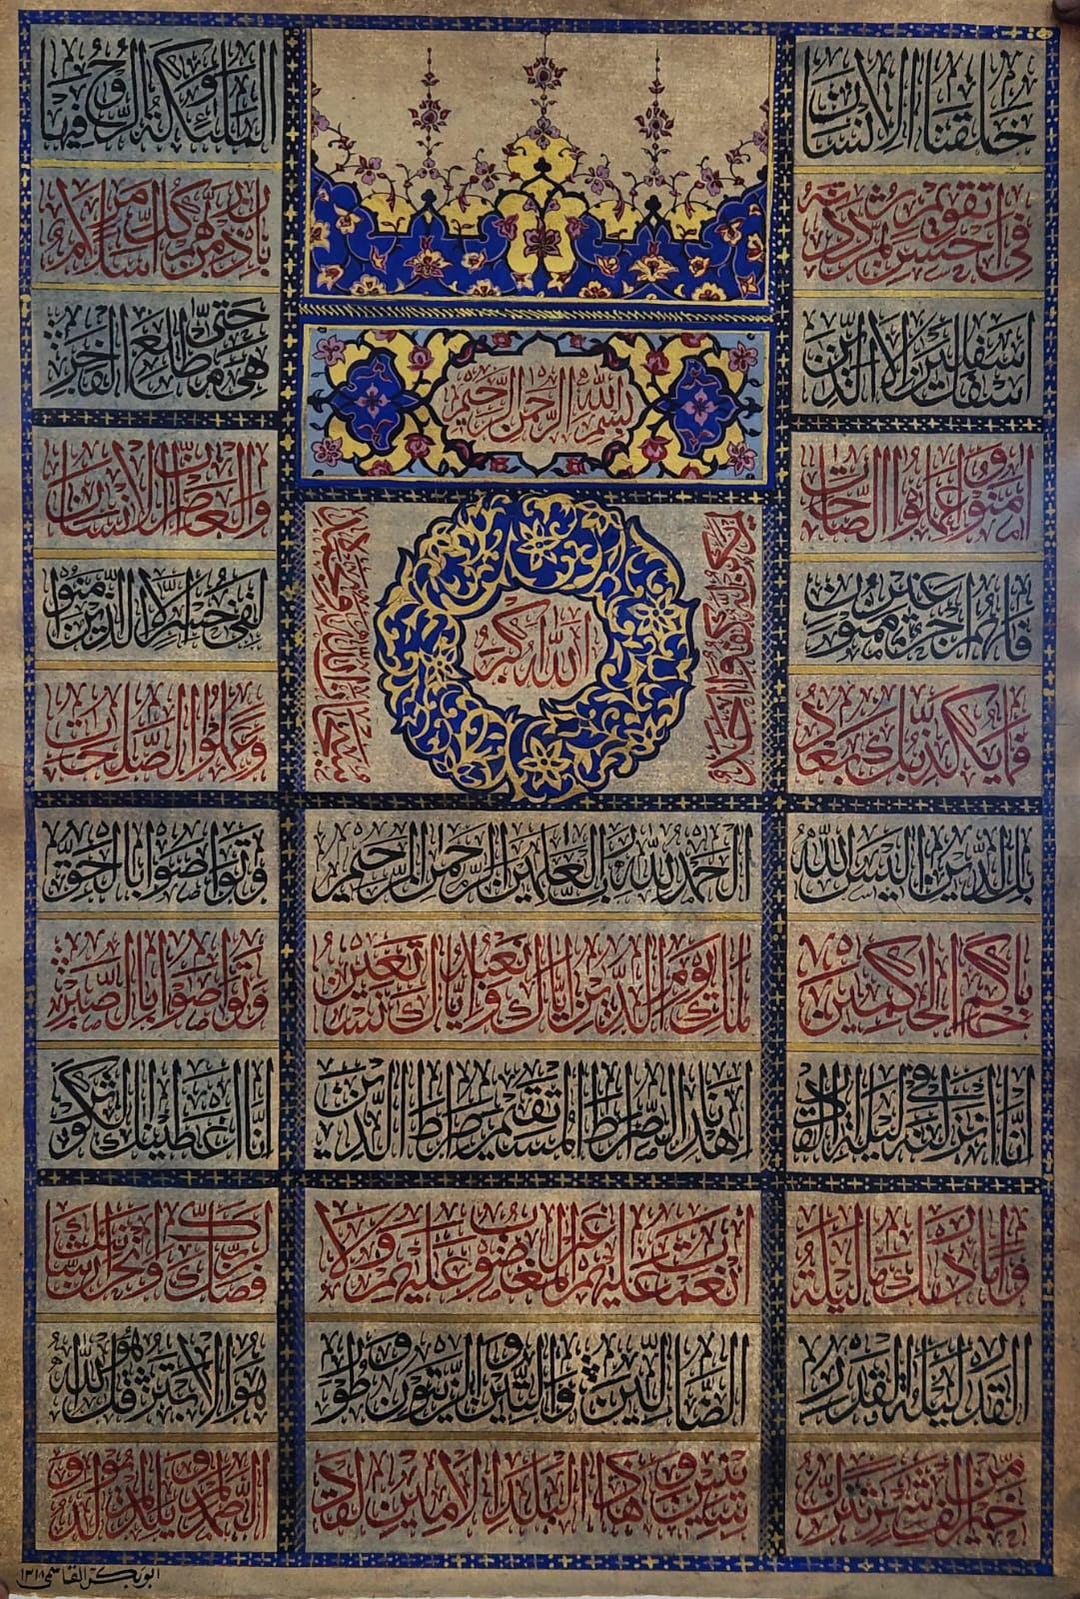 بسم الله الرحمن الرحيم
الله اكبر
الحمد لله رب العلمين الرحمن الرحيم
ملك يوم الدين اياك نعبد و اياك نستعين
اهدنا الصراط المستقيم صراط الذين
انعمت عليهم غير المغضوب عليهم ولا
الضالين والتين والزيتون وطور
سينين وهذا البلد الامين لقد
خلقنا الانسان
في احسن تقويم ثم رددنه
اسفل سفلين الا الذين
امنوا وعملوا الصالحات
فلهم اجر غير ممنون
فما يكذبك بعد
بالدين اليس الله
باحكم الحكمين
انا انزلنه في ليلة القدر
وما ادرىك ما ليلة
القدر ليلة القدر
خير من الف شهر تنزل
الملئكة والروح فيها
باذن ربهم من كل امر سلام
هي حتى مطلع الفجر
والعصر ان الانسان
لفي خسر الا الذين امنوا
وعملوا الصلحات
وتواصوا بالحق
وتواصوا بالصبر
انا اعطينك الكوثر
فصل لربك وانحر ان شانئك
هو الابتر قل هو الله
الصمد لم يلد ولم يولد
يكن له كفوا احد
ابوبكر القاسمي ١٣١٨